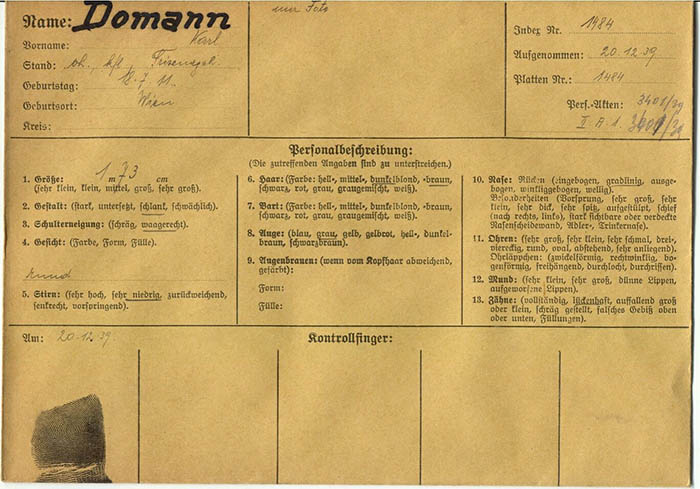 Name: Domann
Vorname: Karl
Stand: vh. kfl.
Geburtstag: 18.7.11.
Geburtsort: Wien
Kreis:
nur Foto
Index Nr. 1484
Aufgenommen: 20.12.39
Platten Nr.: 1484
Pers.-Akten: 3401/39
II. A. 1.
Personalbeschreibung:
(Die zutreffenden Angaben sind zu unterstreichen.)
1. Größe: 1 m 73 cm
(sehr klein, klein, mittel, groß, sehr groß).
2. Gestalt: (stark, untersetzt, schlank, schwächlich).
3. Schulterneigung: (schräg, waagerecht).
4. Gesicht: (Farbe, Form, Fülle).
rund
5. Stirn: (sehr hoch, sehr niedrig, zurückweichend,
senkrecht, vorspringend).
6. Haar: (Farbe: hell-, mittel-, dunkelblond, -braun,
schwarz, rot, grau, graugemischt, weiß).
7. Bart: (Farbe: hell-, mittel-, dunkelblond, -braun,
schwarz, rot, grau, graugemischt, weiß).
8. Auge: (blau, grau, gelb, gelbrot, hell-, dunkel-
braun, schwarzbraun).
9. Augenbrauen: (wenn vom Kopfhaar abweichend,
gefärbt):
Form:
Fülle:
10. Nase: Rücken (eingebogen, gradlinig, ausge-
bogen, winkliggebogen, wellig).
Besonderheiten (Vorsprung, sehr groß, sehr
klein, sehr dick, sehr spitz, aufgestülpt, schief
(nach rechts, links), stark sichtbare oder verdeckte
Nasenscheidewand, Adler-, Trinkernase).
11. Ohren: (sehr groß, sehr klein, sehr schmal, drei-
viereckig, rund, oval, abstehend, sehr anliegend).
Ohrläppchen: (zwickelförmig, rechtwinklig, bo-
genförmig, freihängend, durchlocht, durchrissen).
12. Mund: (sehr klein, sehr groß, dünne Lippen,
aufgeworfene Lippen).
13. Zähne: (vollständig, lückenhaft, auffallend groß
oder klein, schräg gestellt, falsches Gebiß oben
oder unten, Füllungen).
Am: 20.12.39.
Kontrollfinger: